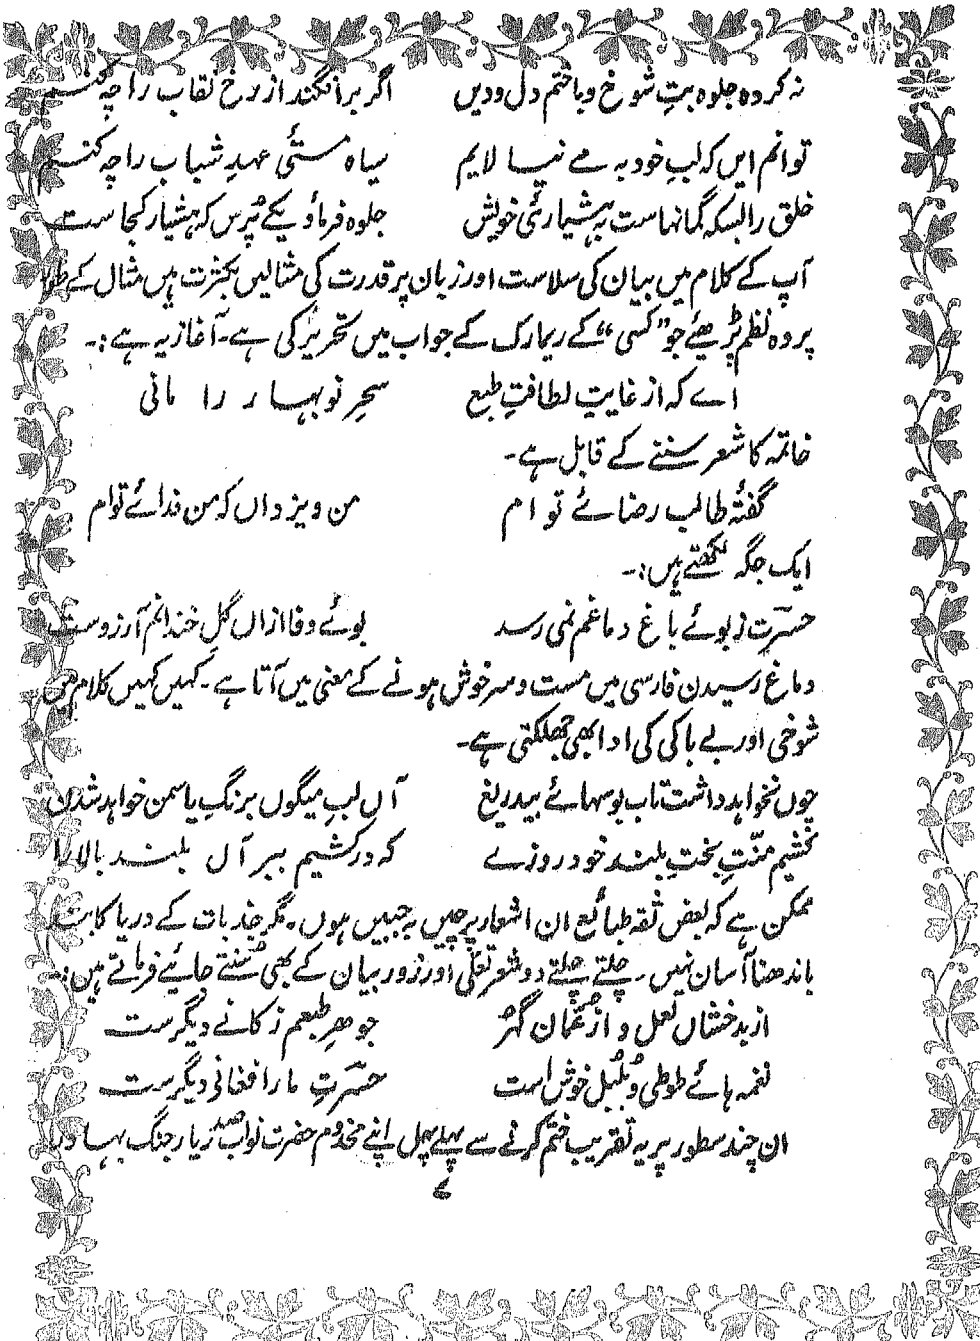 نہ کردہ جلوہ بتِ شوخ و باختم دل و دیں اگر بر افگند از رخ نقاب را چہ کنم
توانم ایں کہ لبِ خود بہ مے نیا لایم سیاہ مستیٔ عہدِ شباب را چہ کنم
خلق را بسکہ گمانہاست بہ ہشیاریٔ خویش جلوہ فرماؤ یکے پُرس کہ ہشیار کجا ست
آپ کے کلام میں بیان کی سلاست اور زبان پر قدرت کی مثالیں بکثرت ہیں مثال کے طور
پر وہ نظم پڑھیئے جو ”کسی“ کے ریمارک کے جواب میں تحریر کی ہے۔ آغاز یہ ہے:۔
اے کہ از غایتِ لطافتِ طبع سحرِ نوبہار را مانی
خاتمہ کا شعر سننے کے قابل ہے۔
گفتۂ طالب رضائے تو ام من و یزداں کہ من فدائے توام
ایک جگہ لکھتے ہیں:۔
حسرت ز بوئے باغ دماغم نمی رسد بوئے وفا ازاں گلِ خندانم آرزوست
دماغ رسیدن فارسی میں مست و سرخوش ہونے کے معنی میں آتا ہے۔ کہیں کہیں کلام میں
شوخی اور بے باکی کی ادا بھی جھلکتی ہے۔
چوں نخواہد داشت تاب بوسہائے بیدریغ آں لبِ میگوں برنگِ یاسمن خواہد شدن
کشیم منّتِ بختِ بلند خود روزے کہ درکشیم ببر آں بلند بالا را
ممکن ہے کہ بعض ثقہ طبائع ان اشعار پر چیں بہ جبیں ہوں۔ مگر جذبات کے دریا کا بند
باندھنا آسان نہیں۔ چلتے چلتے دو شعر تعلّی اور زور بیان کے بھی سُنتے جائیے فرماتے ہیں:۔
از بدخشاں لعل و از عُمّان گہر جوہرِ طبعم ز کانے دیگرست
نغمہ ہائے طوطی و بُلبُل خوش است حسرتِ ما را فغانی دیگرست
ان چند سطور پر یہ تقریب ختم کرنے سے پہلے پہل اپنے مخدوم حضرت نواب صدر یار جنگ بہادر
۷